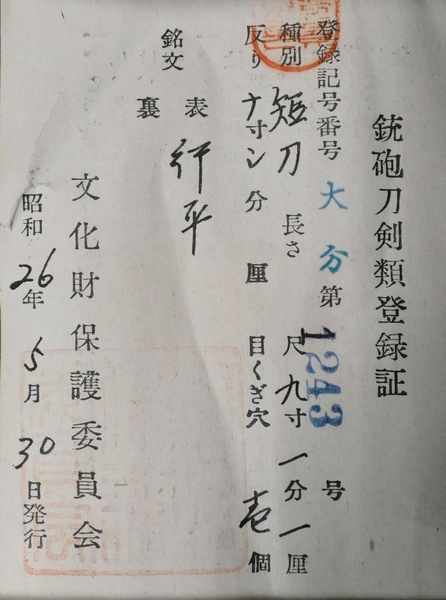 銃砲刀剣類登録証
登録記号番号 大分 第 1243 号
種別 短刀 長さ 尺 九寸 一分 一厘
反り ナ寸シ分 厘 目くぎ穴 壱個
銘文 表 行平
裏
文化財保護委員会
昭和26年5月30日発行